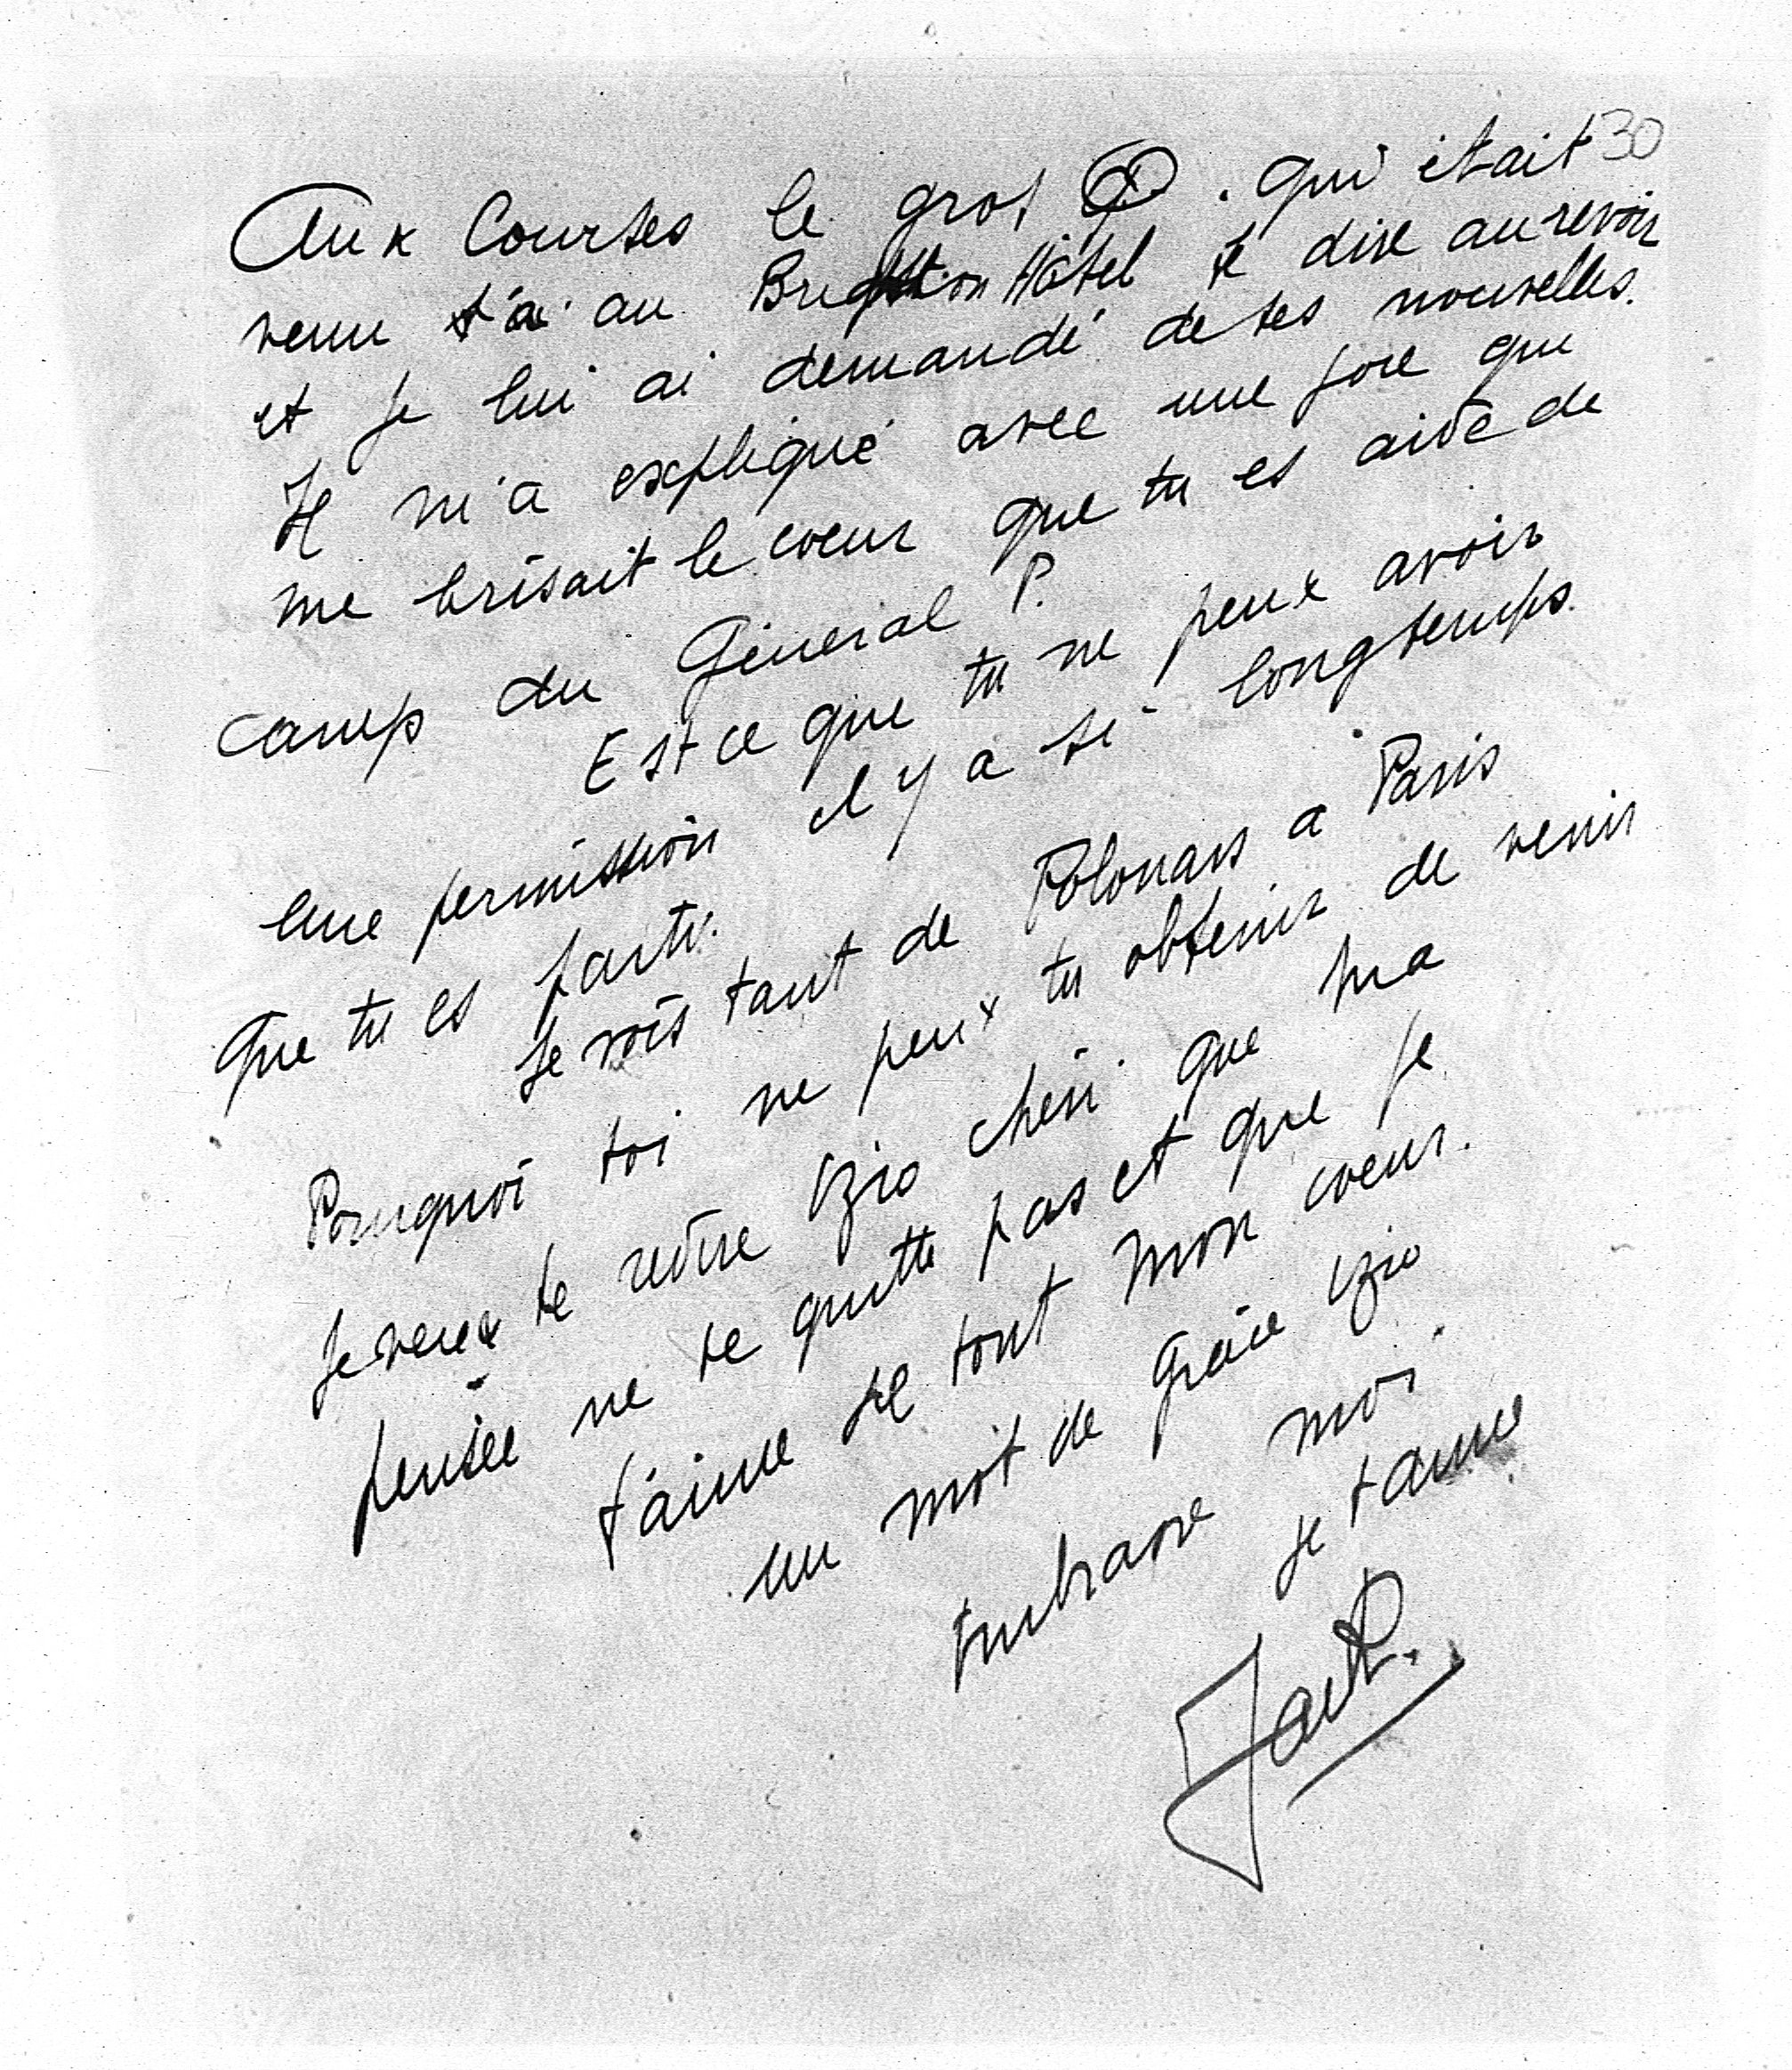 30
Aux Courses le gros P. qui était
venu t'a au Brighton Hôtel te dire au revoir
et je lui ai demandé de tes nouvelles.
Il m'a expliqué avec une joie qui
me brisait le coeur que tu es aide de
camp du Général P.
Est ce que tu ne peux avoir
une permission il y a si longtemps
que tu es parti.
Je vois tant de Polonais a Paris
Pourquoi toi ne peux tu obtenir de venir
Je veux te redire Uzio chéri que ma
pensée ne te quitte pas et que je
t'aime de tout mon coeur.
un mot de grâce Uzio
Embrasse moi.
je t'aime